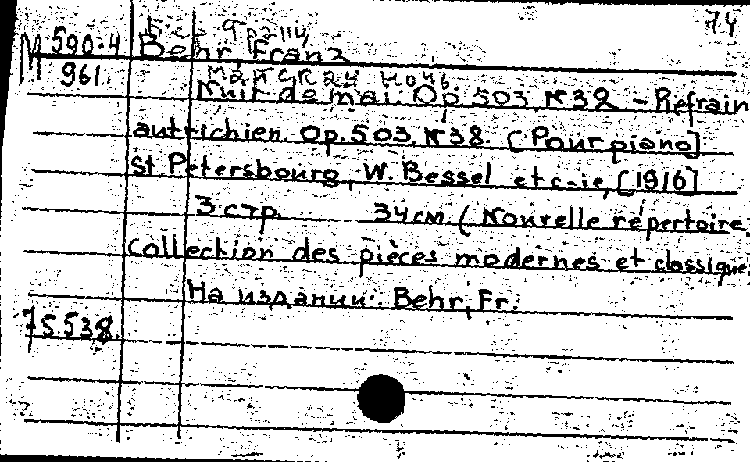 74
Бер Франц
М 590-4 Behr, Franz
961. Майская ночь
Nuit de mai. Op. 503. №32 - Refrain
autrichien. Op. 503. №38. [Pour piano]
St Petersbourg, W. Bessel et c-ie, [1916]
3 стр. 34 см. (Nouvelle répertoire.
Collection des pièces modernes et classique
На издании: Behr, Fr.
75538.